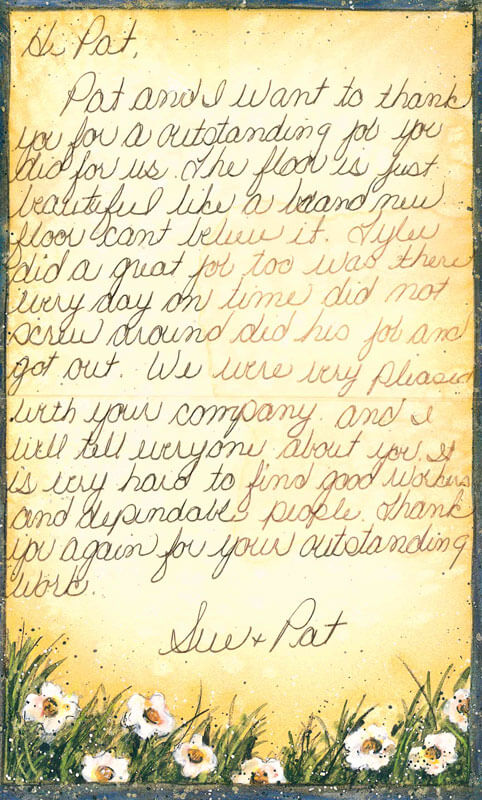 Hi Pat,
Pat and I want to thank
you for a outstanding job you
did for us. The floor is just
beautiful like a brand new
floor cant believe it. Tyler
did a great job too was there
every day on time did not
screw around did his job and
got out. We were very pleased
with your company. and I
will tell everyone about you. It
is very hard to find good workers
and dependable people. Thank
you again for your outstanding
work.
Sue + Pat